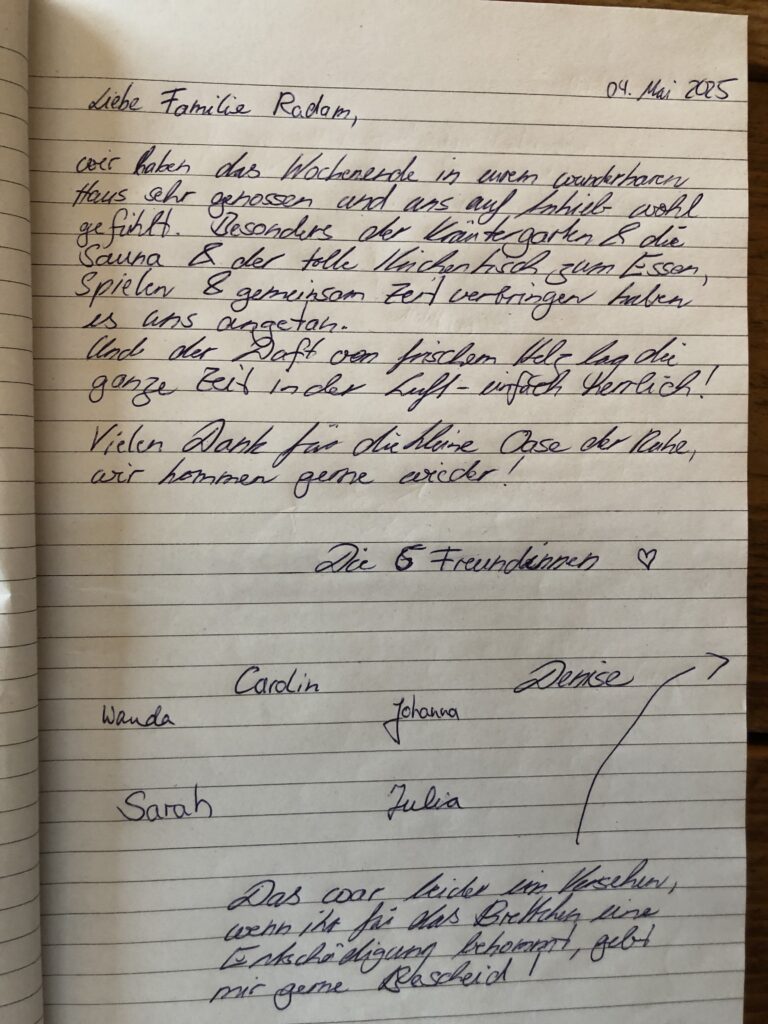 04. Mai 2025
Liebe Familie Radam,
wir haben das Wochenende in eurem wunderbaren
Haus sehr genossen und uns auf Anhieb wohl
gefühlt. Besonders der Kräutergarten & die
Sauna & der tolle Küchentisch zum Essen,
Spielen & gemeinsam Zeit verbringen haben
es uns angetan.
Und der Duft von frischem Holz lag die
ganze Zeit in der Luft - einfach herrlich!
Vielen Dank für die kleine Oase der Ruhe,
wir kommen gerne wieder!
Die 6 Freundinnen ♡
Carolin Denise
Wanda Johanna
Sarah Julia
Das war leider ein Versehen,
wenn ihr für das Brettchen eine
Entschädigung bekommt, gebt
mir gerne Bescheid!